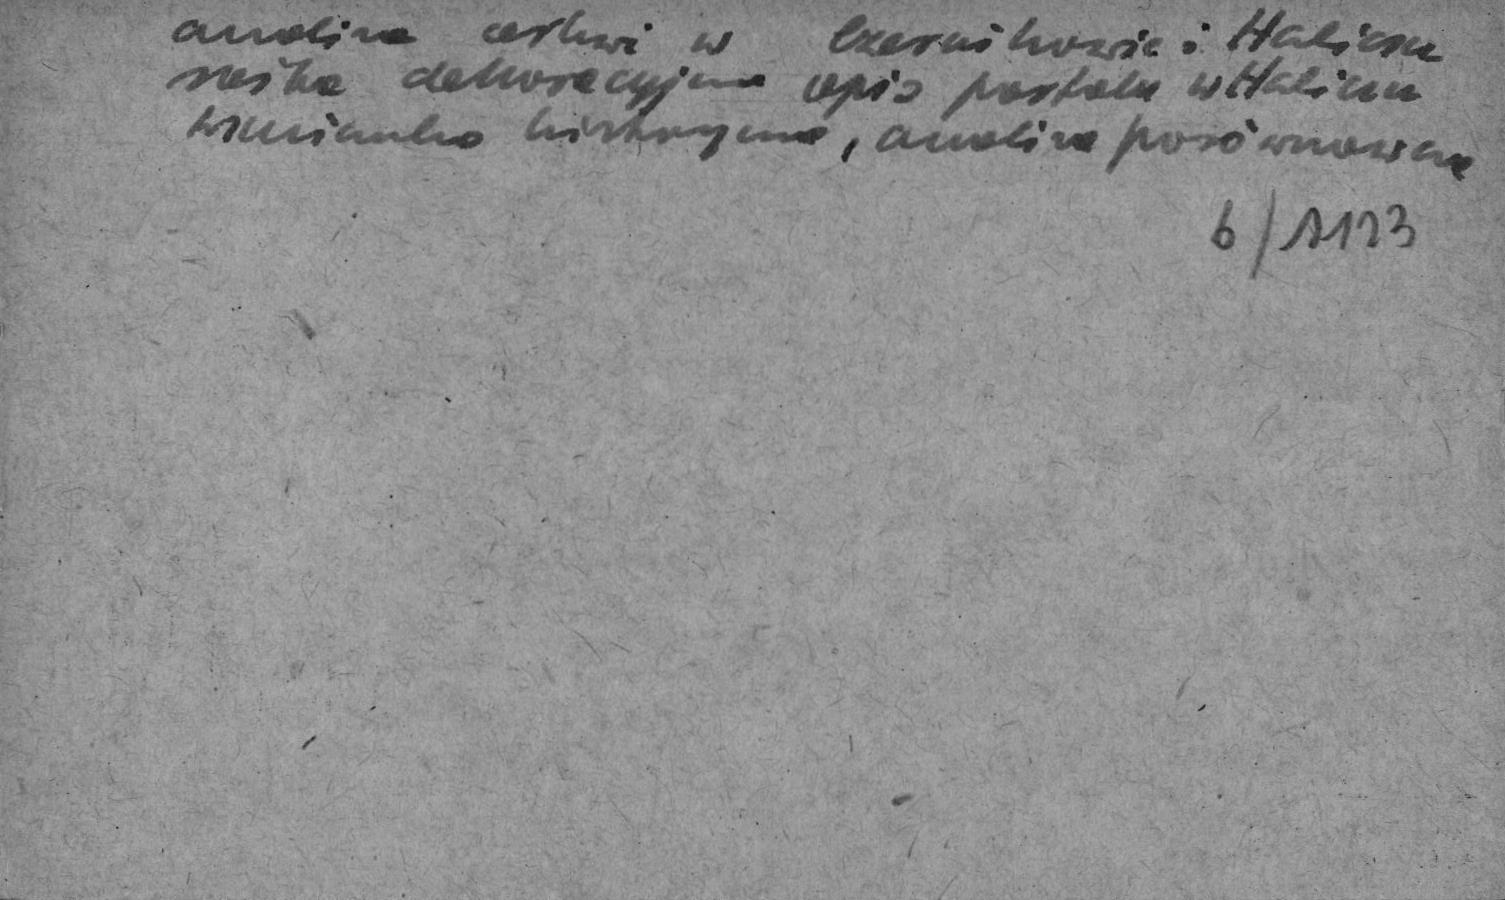 analiza cerkwi w Czernihowie i Haliczu
rzeźba dekoracyjna opis portalu w Haliczu
wzmianka historyczna, analiza porównawcza
6/1123